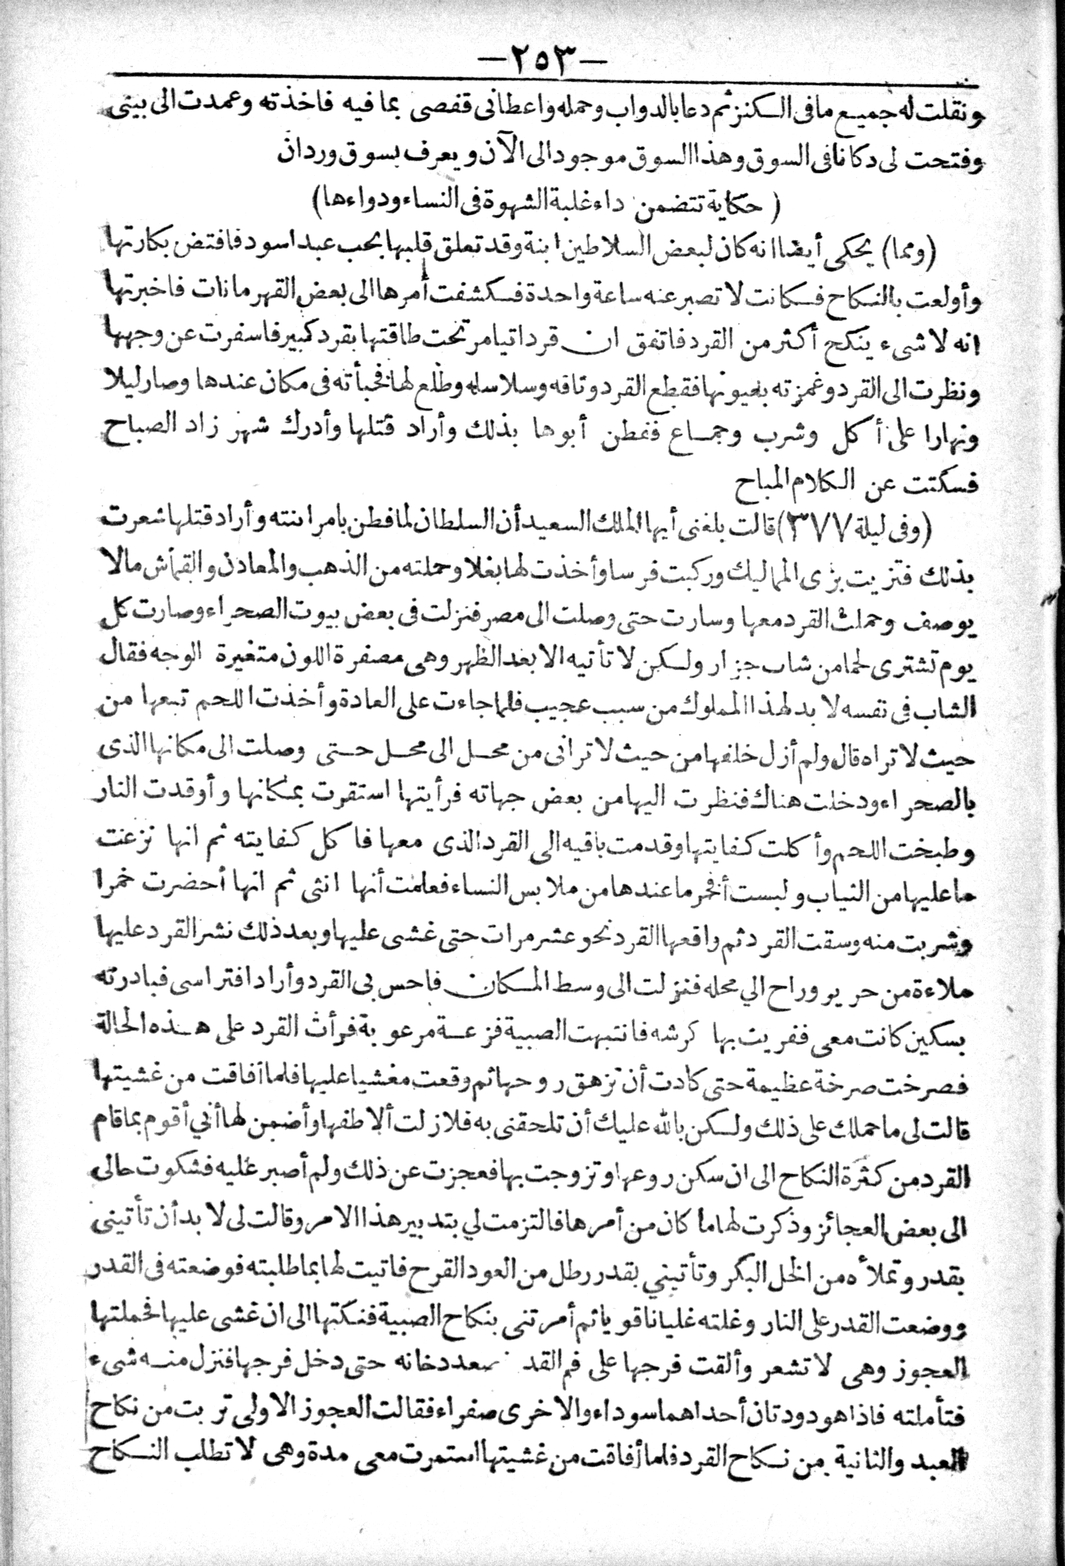 —٢٥٣—
ونقلت له جميع ما فى الكنز ثم دعا بالدواب وحمله واعطانى قفصى بما فيه فاخذته وعمدت الى بيتى
وفتحت لى دكانا فى السوق وهذا السوق موجود الى الآن ويعرف بسوق وردان
( حكاية تتضمن داء غلبة الشهوة فى النساء ودواءها)
(ومما) يحكى أيضا انه كان لبعض السلاطين ابنة وقد تعلق قلبها بحب عبد اسود فافتض بكارتها
وأولعت بالنكاح فكانت لا تصبر عنه ساعة واحدة فكشفت أمرها الى بعض القهرمانات فاخبرتها
انه لا شىء ينكح أكثر من القرد فاتفق ان قرداتيا مر تحت طاقتها بقرد كبير فاسفرت عن وجهها
ونظرت الى القرد وغمزته بعيونها فقطع القرد وثاقه وسلاسله وطلع لها فخبأته فى مكان عندها وصار ليلا
ونهارا على أكل وشرب وجماع ففطن أبوها بذلك وأراد قتلها وأدرك شهر زاد الصباح
فسكتت عن الكلام المباح
(وفى ليلة ٣٧٧) قالت بلغنى أيها الملك السعيد أن السلطان لما فطن بامر ابنته وأراد قتلها شعرت
بذلك فتزيت بزى المماليك وركبت فرسا وأخذت لها بغلا وحملته من الذهب والمعادن والقماش مالا
يوصف وحملت القرد معها وسارت حتى وصلت الى مصر فنزلت فى بعض بيوت الصحراء وصارت كل
يوم تشترى لحما من شاب جزار ولكن لا تأتيه الا بعد الظهر وهى مصفرة اللون متغيرة الوجه فقال
الشاب فى نفسه لا بد لهذا المملوك من سبب عجيب فلما جاءت على العادة وأخذت اللحم تبعها من
حيث لا تراه قال ولم أزل خلفها من حيث لا ترانى من محل الى محل حتى وصلت الى مكانها الذى
بالصحراء ودخلت هناك فنظرت اليها من بعض جهاته فرأيتها استقرت بمكانها وأوقدت النار
وطبخت اللحم وأكلت كفايتها وقدمت باقيه الى القرد الذى معها فاكل كفايته ثم انها نزعت
ما عليها من الثياب ولبست أفخر ما عندها من ملابس النساء فعلمت أنها انثى ثم انها أحضرت خمرا
وشربت منه وسقت القرد ثم واقعها القرد نحو عشر مرات حتى غشى عليها وبعد ذلك نشر القرد عليها
ملاءة من حرير وراح الي محله فنزلت الى وسط المكان فاحس بى القرد وأراد افتراسى فبادرته
بسكين كانت معى ففريت بها كرشه فانتبهت الصبية فزعة مرعوبة فرأت القرد على هذه الحالة
فصرخت صرخة عظيمة حتى كادت أن تزهق روحها ثم وقعت مغشيا عليها فلما أفاقت من غشيتها
قالت لى ما حملك على ذلك ولكن بالله عليك أن تلحقنى به فلا زلت ألاطفها وأضمن لها أني أقوم بما قام
القرد من كثرة النكاح الى ان سكن روعها وتزوجت بها فعجزت عن ذلك ولم أصبر عليه فشكوت حالى
الى بعض العجائز وذكرت لها ما كان من أمرها فالتزمت لي بتدبير هذا الامر وقالت لى لا بد أن تأتينى
بقدر وتملأه من الخل البكر وتأتيني بقدر رطل من العود القرح فاتيت لها بما طلبته فوضعته فى القدر
ووضعت القدر على النار وغلته غليانا قويا ثم أمرتنى بنكاح الصبية فنكحتها الى ان غشى عليها فحملتها
العجوز وهى لا تشعر وألقت فرجها على فم القد صعد دخانه حتى دخل فرجها فنزل منه شىء
فتأملته فاذا هو دودتان أحداهما سوداء والاخرى صفراء فقالت العجوز الاولى تربت من نكاح
العبد والثانية من نكاح القرد فلما أفاقت من غشيتها استمرت معى مدة وهى لا تطلب النكاح